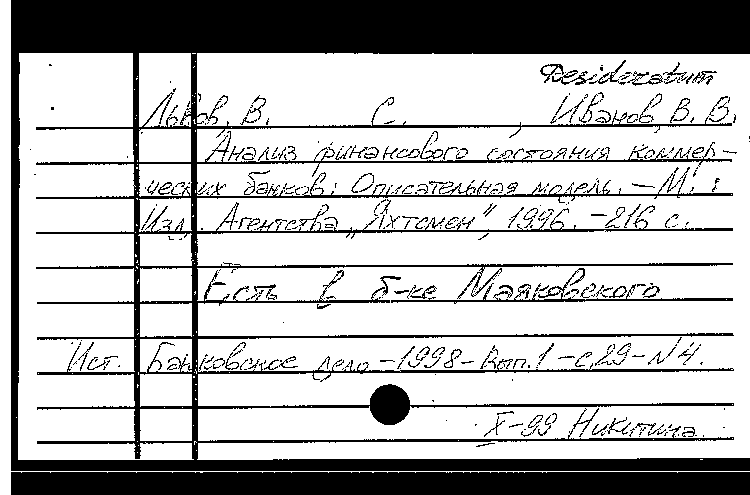 Desideratum
Львов, В. С. , Иванов, В. В.
Анализ финансового состояния коммер-
ческих банков: Описательная модель. – М. :
Изд. Агентства „Яхтсмен", 1996. – 216 с.
Есть в б-ке Маяковского
Ист. Банковское дело – 1998 – Вып. 1 – с. 29 – N 4.
X-99 Никитина